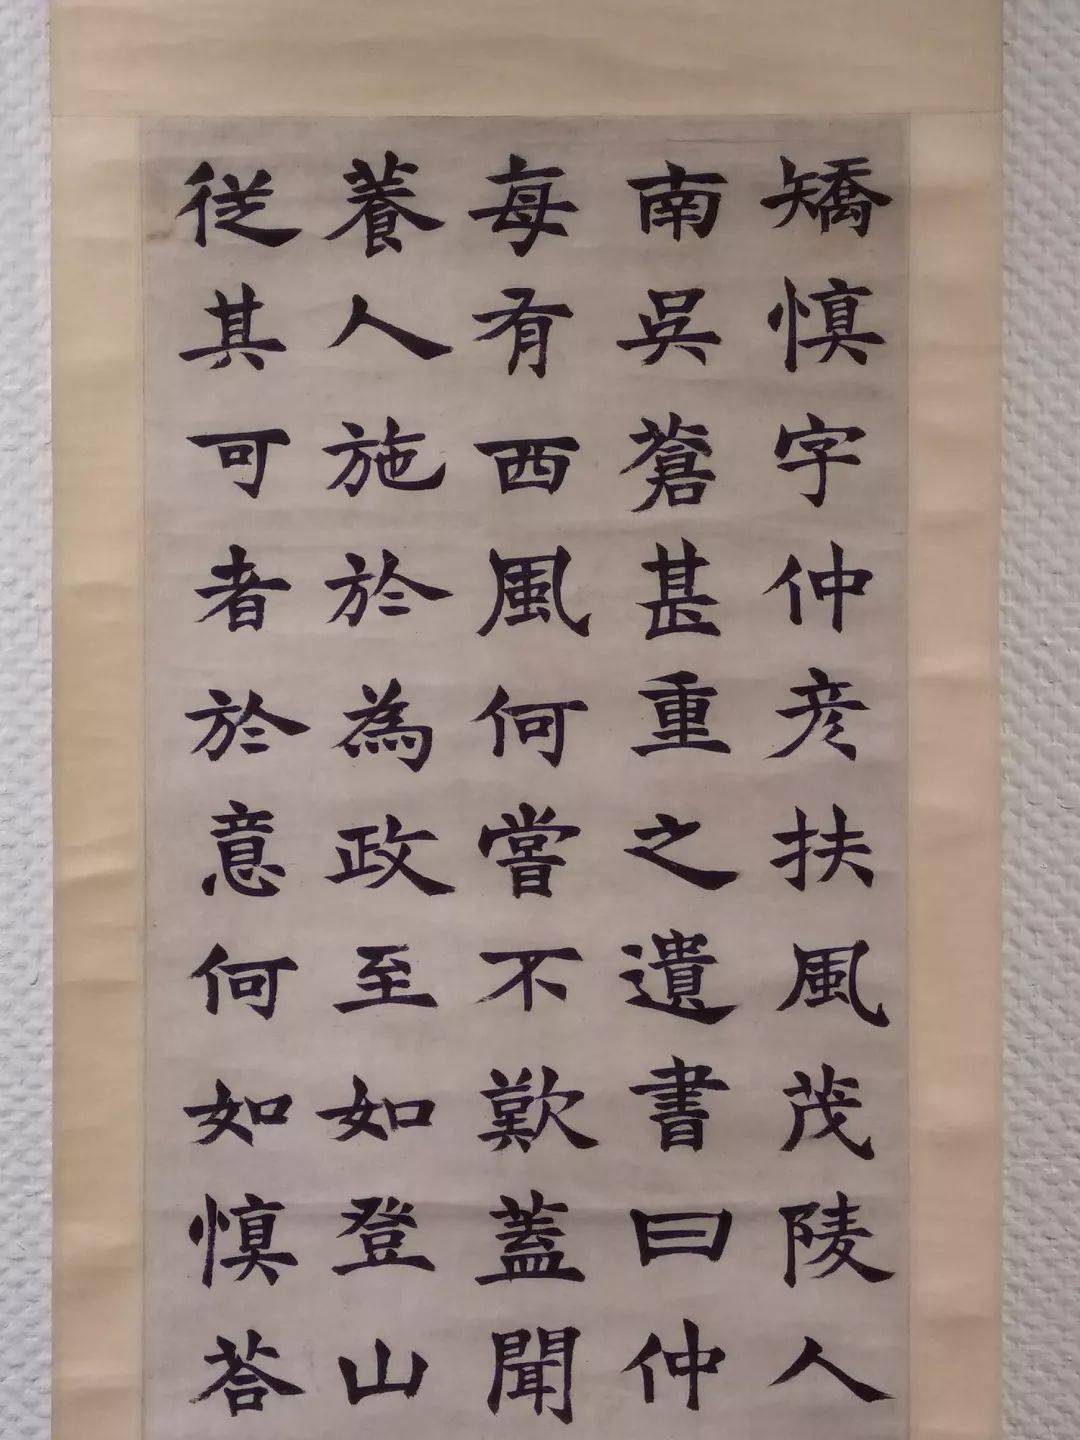 矯慎字仲彦扶風茂陵人
南吳蒼甚重之遺書曰仲
每有西風何嘗不歎蓋聞
養人施於為政至如登山
從其可者於意何如慎荅